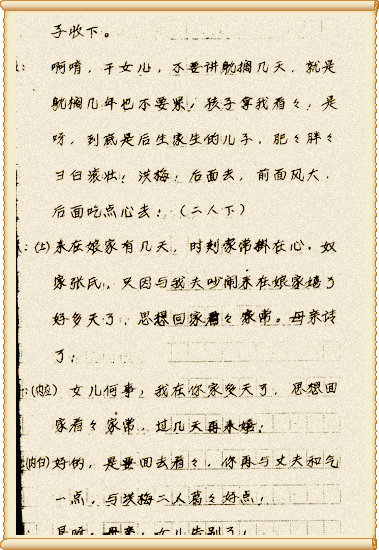 子收下。
：啊唷，干女儿，不要讲躭搁几天，就是
躭搁几年也不要累，孩子拿我看々，是
呀，到底是后生家生的儿子，肥々胖々
白白滚壮，洪梅，后面去，前面风大，
后面吃点心去！（二人下）
：(上)来在娘家有几天，时刻家常掛在心。奴
家张氏，只因与我夫吵闹来在娘家嬉了
好多天了，思想回家看々家常。母亲请
了！
：(内应)女儿何事，我在你家多天了，思想回
家看々家常，过几天再来嬉！
(内白)好的，是要回去看々，你再与丈夫和气
一点，与洪梅二人
好点！
是呀，母亲，女儿告别了！